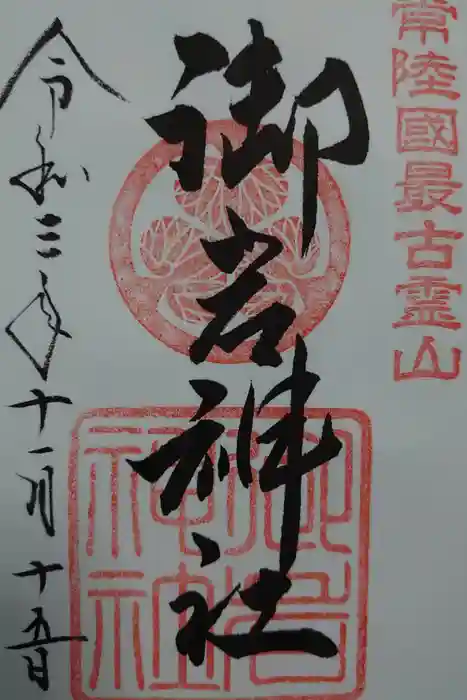 常陸國最古霊山
御岩神社
御岩神社
令和三年十一月十五日